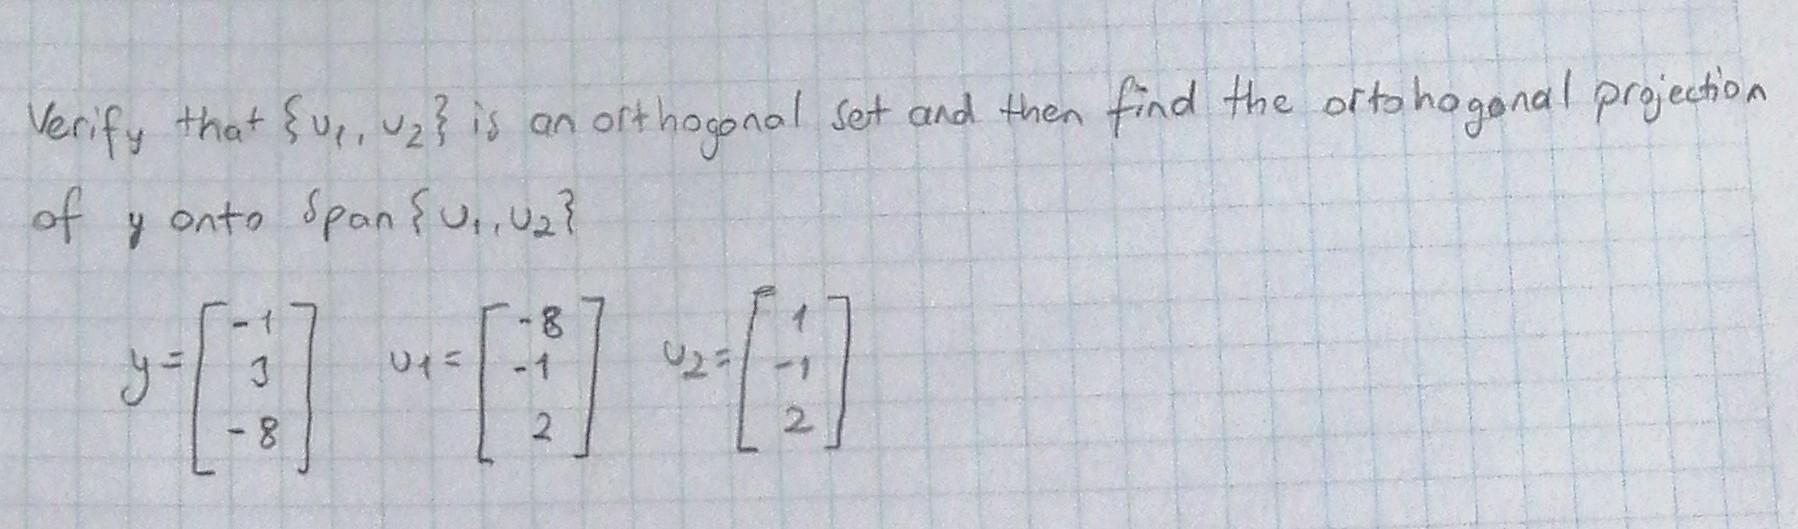 Verify that {u1, u2} is an orthogonal set and then find the ortohogonal projection
of y onto Span{u1, u2}
y=[-1 3 -8] u1=[-8 -1 2] u2=[1 -1 2]